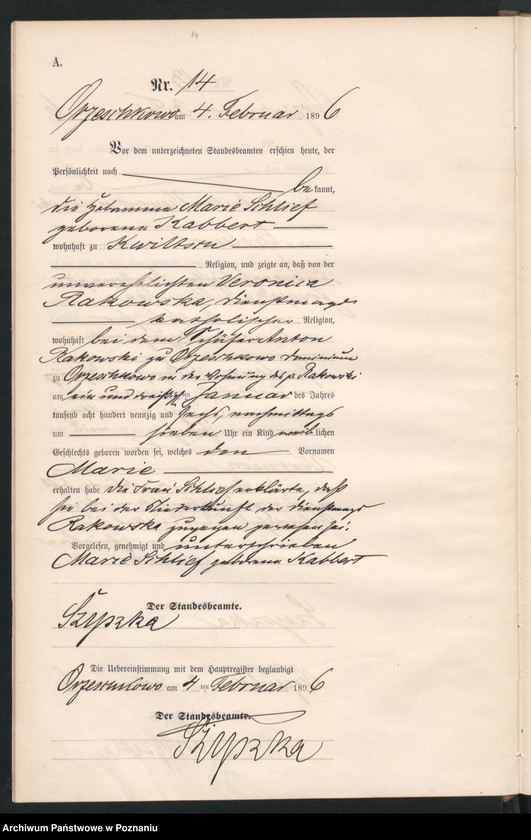 14
A.
Nr. 14
Orzeschkowo am 4. Februar 1896
Vor dem unterzeichneten Standesbeamten erschien heute, der
Persönlichkeit nach be kannt,
die Hebamme Marie Schlief
geborene Kabbert
wohnhaft zu Kwiltsch
Religion, und zeigte an, daß von der
unverehelichten Veronica
Rakowska, Dienstmagd
katholischer Religion,
wohnhaft bei dem Schäfer Anton
Rakowski zu Orzeschkowo Dominium
zu Orzeschkowo in der Wohnung des p. Rakowski
am ein und dreißigsten Januar des Jahres
tausend acht hundert neunzig und sechs, nachmittags
um sieben Uhr ein Kind weiblichen
Geschlechts geboren worden sei, welches den Vornamen
Marie
erhalten habe die Frau Schlief erklärte, daß
sie bei der Niederkunft der Dienstmagd
Rakowska zugegen gewesen sei.
Vorgelesen, genehmigt und unterschrieben
Marie Schlief geborene Kabbert
Der Standesbeamte.
Szyszka
Die Uebereinstimmung mit dem Hauptregister beglaubigt
Orzeschkowo am 4 ten Februar 1896
Der Standesbeamte.
Szyszka
Archiwum Państwowe w Poznaniu